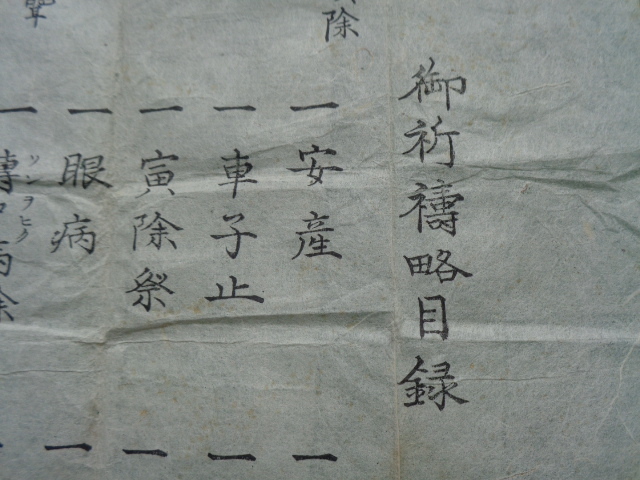 御祈禱略目録
除
一 安産
一 車子止
一 寅除祭
一 眼病
一
一
一
一
一